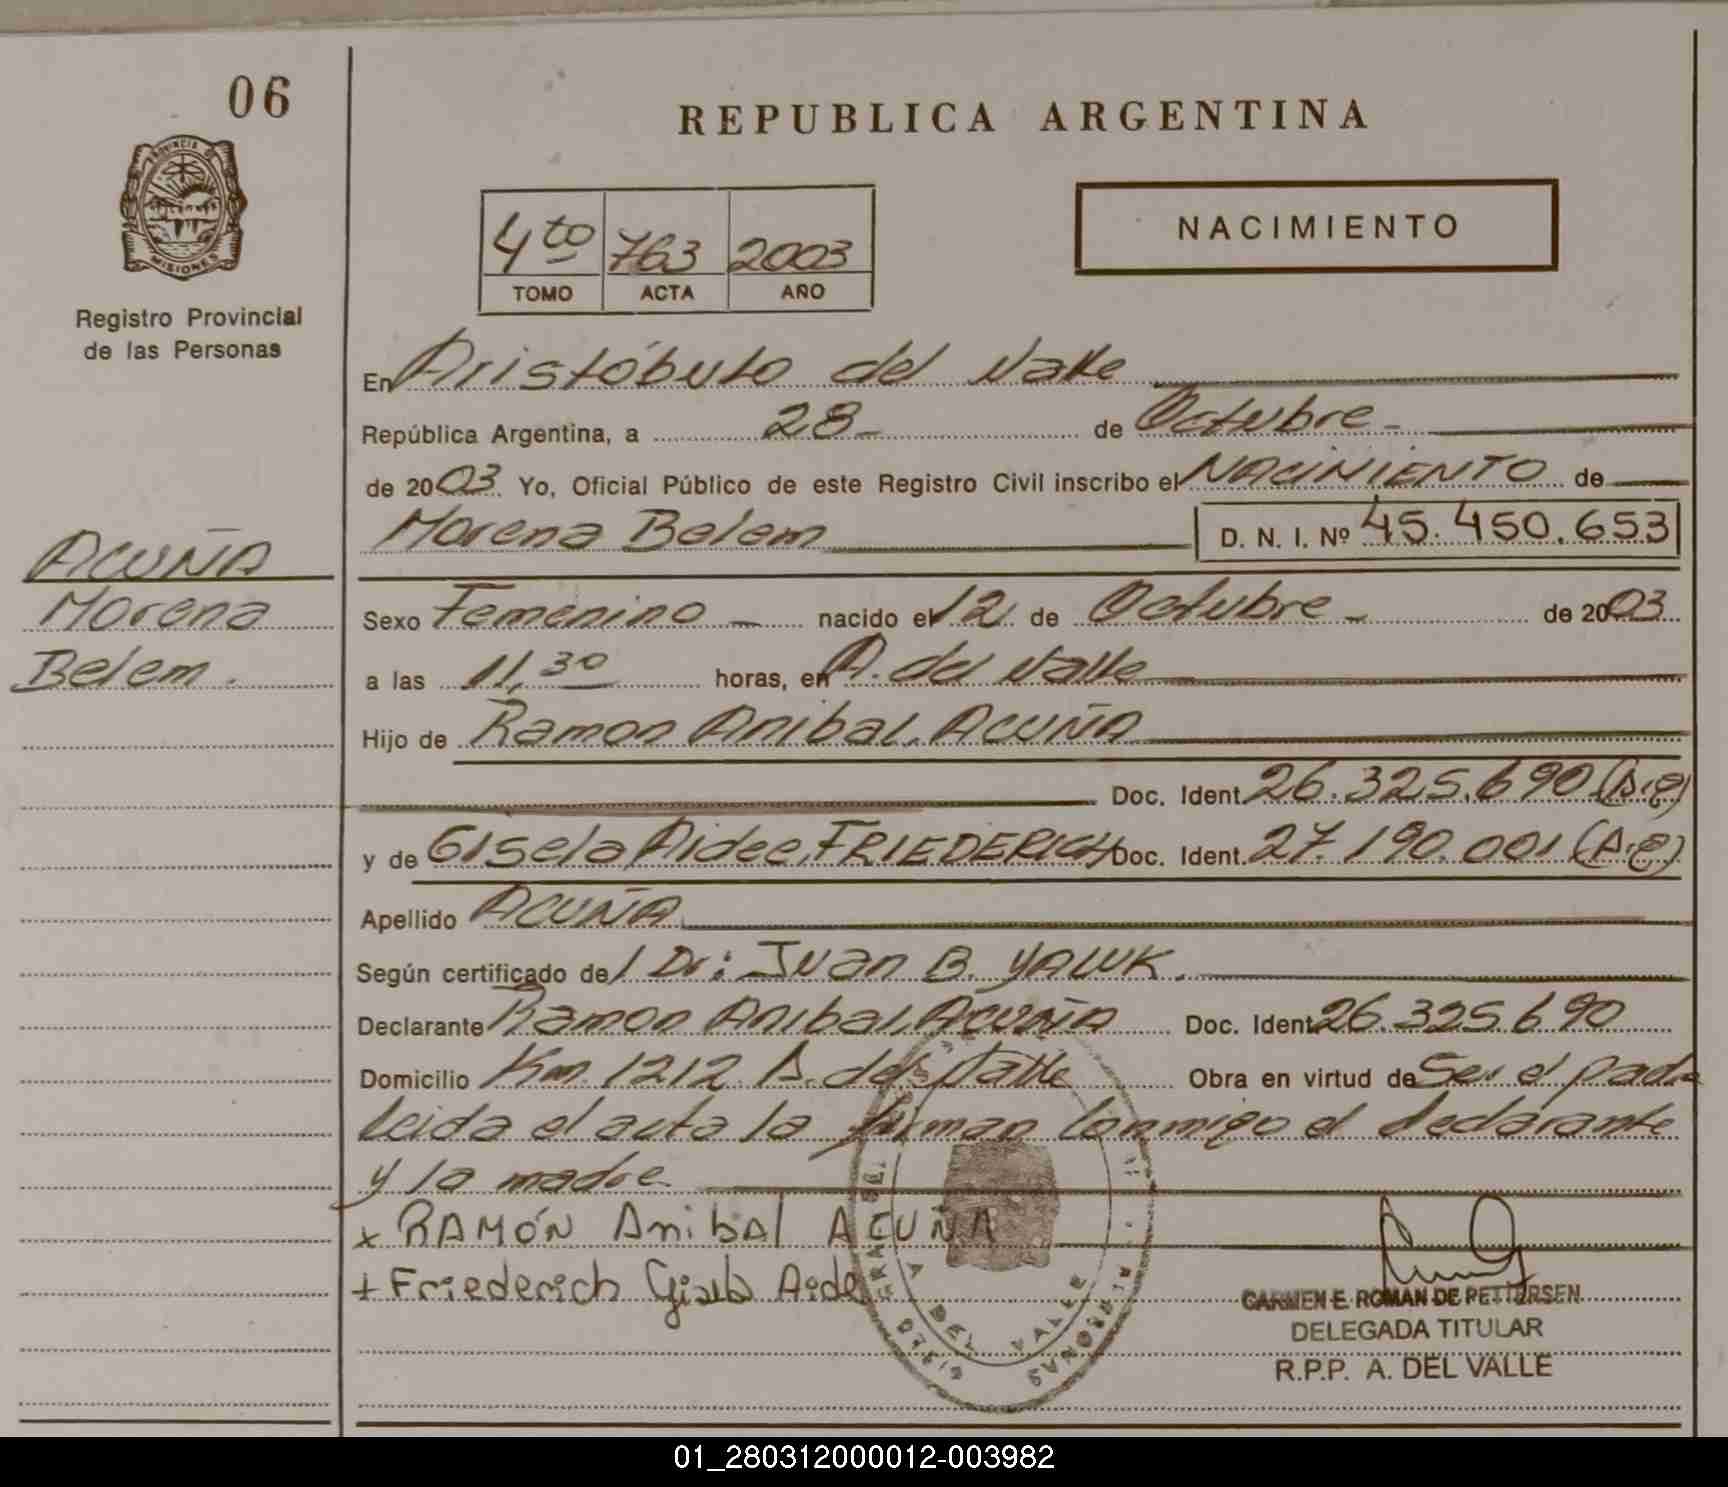 06
REPUBLICA ARGENTINA
PROVINCIA DE
MISIONES
Registro Provincial
de las Personas
4to 763 2003
TOMO ACTA AÑO
NACIMIENTO
En Aristóbulo del Valle
República Argentina, a 28 de Octubre
de 2003. Yo, Oficial Público de este Registro Civil inscribo el NACIMIENTO de
Morena Belem D. N. I. Nº 45.450.653
ACUÑA
Morena
Belem.
Sexo Femenino nacido el 12 de Octubre de 2003
a las 11,30 horas, en A. del Valle
Hijo de Ramon Anibal, ACUÑA
Doc. Ident. 26.325.690 (A.e)
y de Gisela Aidee, FRIEDERICH Doc. Ident. 27.190.001 (A.e)
Apellido ACUÑA
Según certificado del Dr: Juan B. YALUK.
Declarante Ramon Anibal, ACUÑA Doc. Ident. 26.325.690
Domicilio Km. 1212 A. del Valle Obra en virtud de Ser el padre
Leida el acta la firman conmigo el declarante
y la madre
x RAMÓN Anibal ACUÑA
+ Friederich Gisela Aide
A DEL VALLE
CARMEN E. ROMAN DE PETTERSEN
DELEGADA TITULAR
R.P.P. A. DEL VALLE
01_280312000012-003982